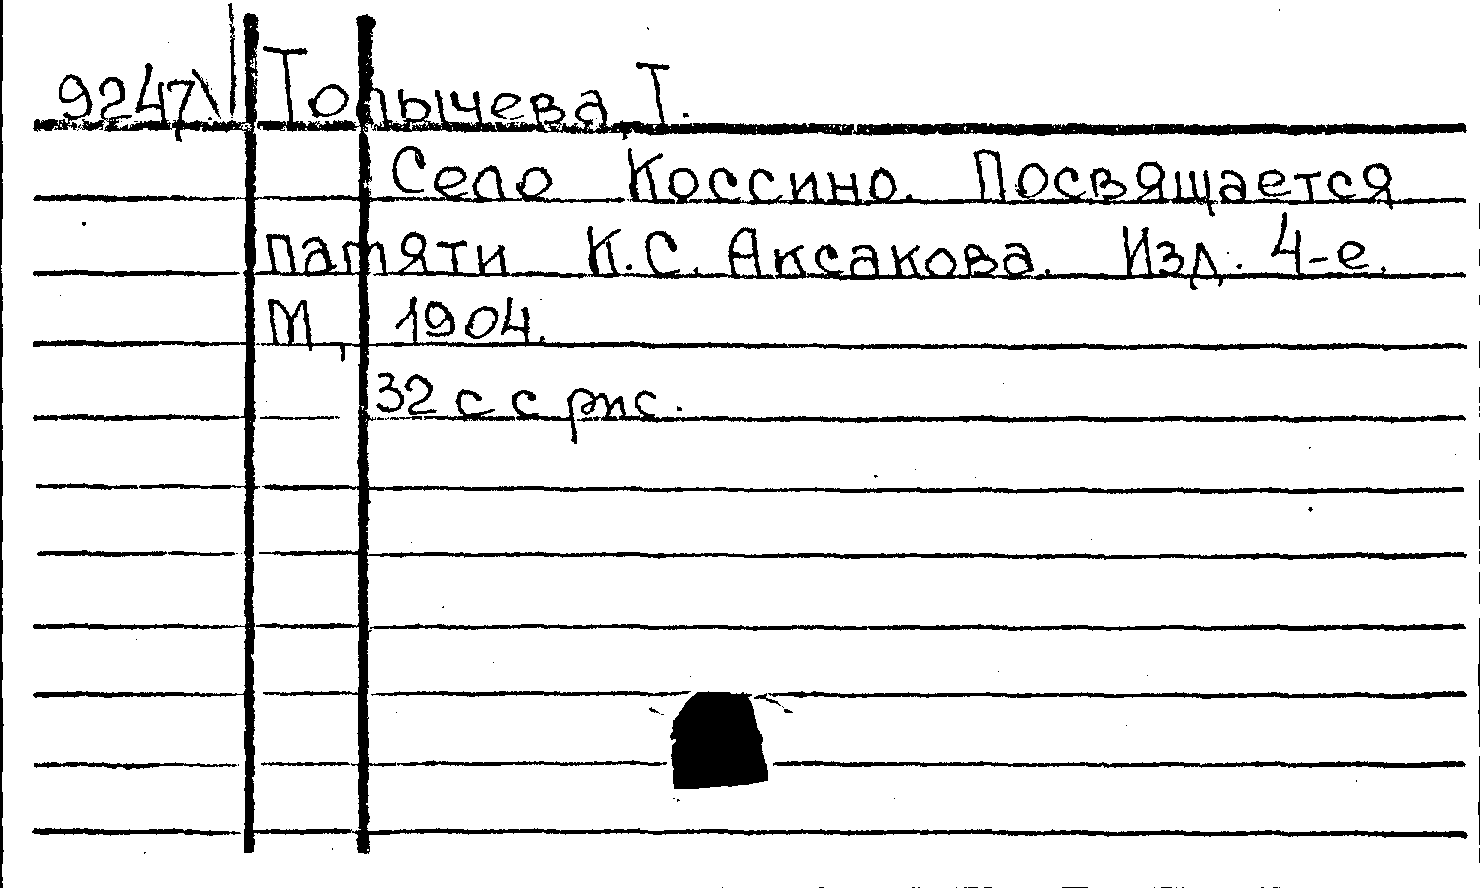 9247\ Толычева, Т.
Село Коссино. Посвящается
памяти К.С. Аксакова. Изд. 4-е.
М, 1904.
32 с с рис.